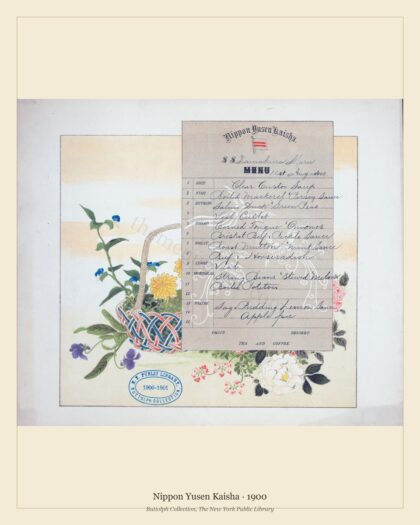 Nippon Yusen Kaisha.
S.S. Kamakura Maru
MENU 1st Aug 1900
1 SOUP Clear Custor Soup
2 FISH Boild Mackerel Parsley Sauce
3 ENTREES Salmi Duck Green Peas
4 Veal Cutlet
Corned Tongue Onions
Brisket Beef Pickle Sauce
Roast Mutton Mint Sauce
Beef Horseradish
CURRY
String Beans Stewed Melon
Boild Potatoes
PASTRY Sago Pudding Lemon Sauce
Apple Pie
FRUIT DESSERT
TEA AND COFFEE
N. Y. PUBLIC LIBRARY
1900-1901
BUTTOLPH COLLECTION
Nippon Yusen Kaisha · 1900
Buttolph Collection, The New York Public Library